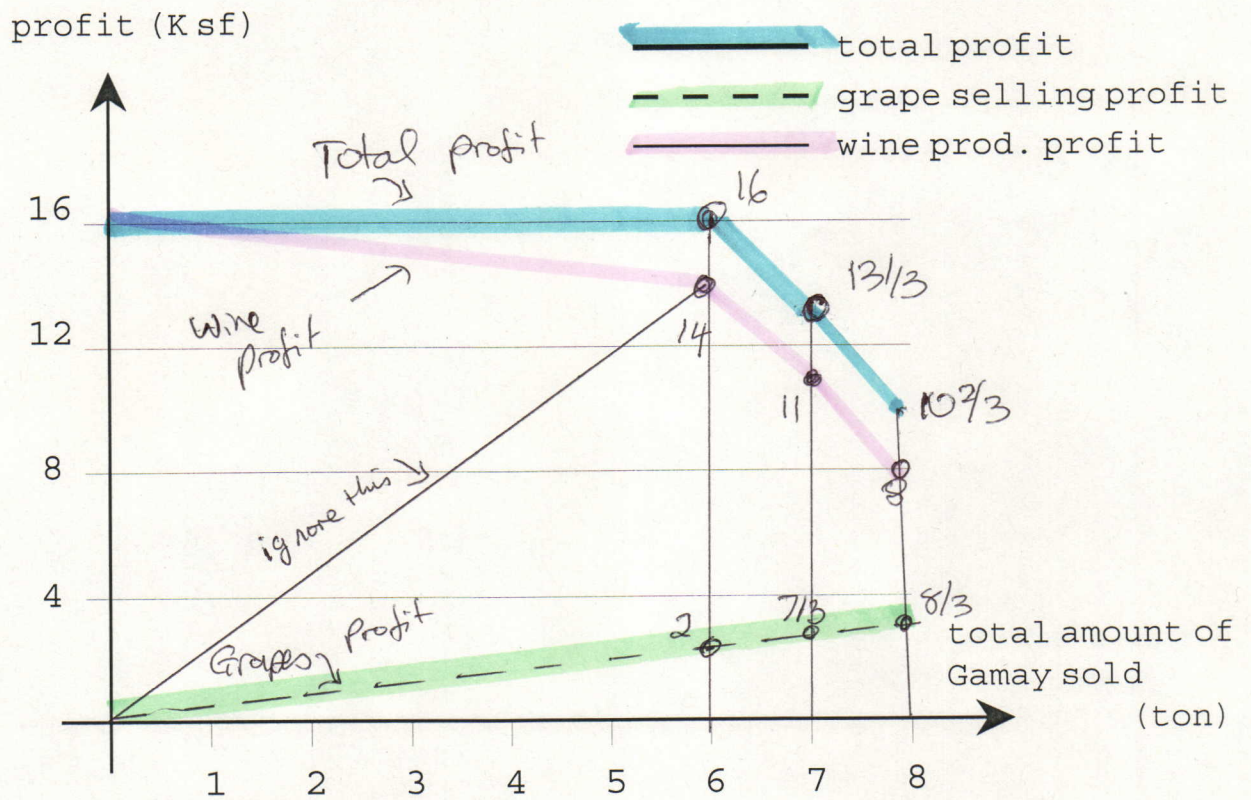 profit (K sf)
total profit
grape selling profit
wine prod. profit
Total profit
16
16
13 1/3
Wine
profit
12
14
11
10 2/3
8
ignore this
4
Grapes profit
2
7/3
8/3
total amount of
Gamay sold
(ton)
1 2 3 4 5 6 7 8